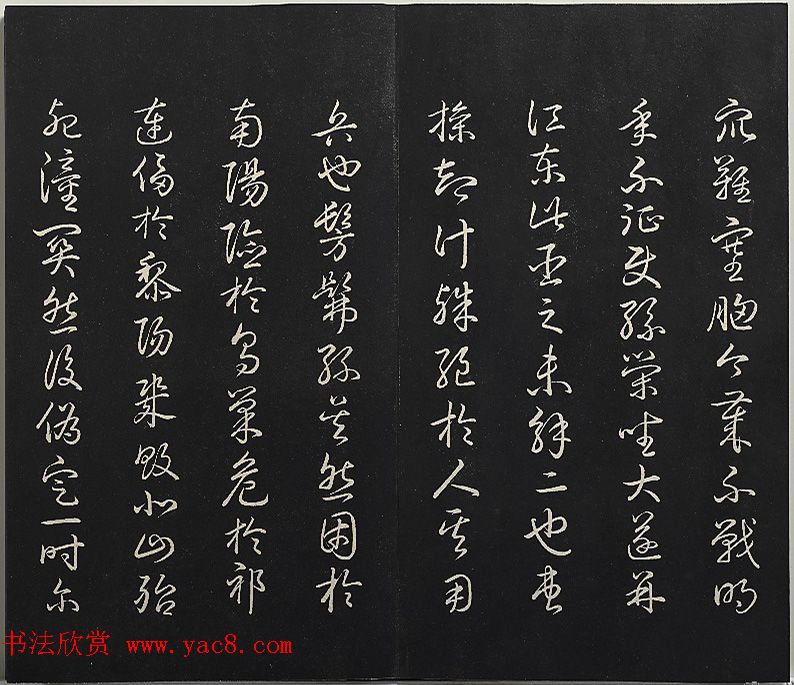 众難塞胸今歲不戰明
年不征使孫策坐大遂并
江東此臣之未解二也曹
操智計殊絕於人其用
兵也髣髴孫吳然困於
南陽險於烏巢危於祁
連偪於黎陽幾敗北山殆
死潼關然後偽定一时尔
书法欣赏 www.yac8.com